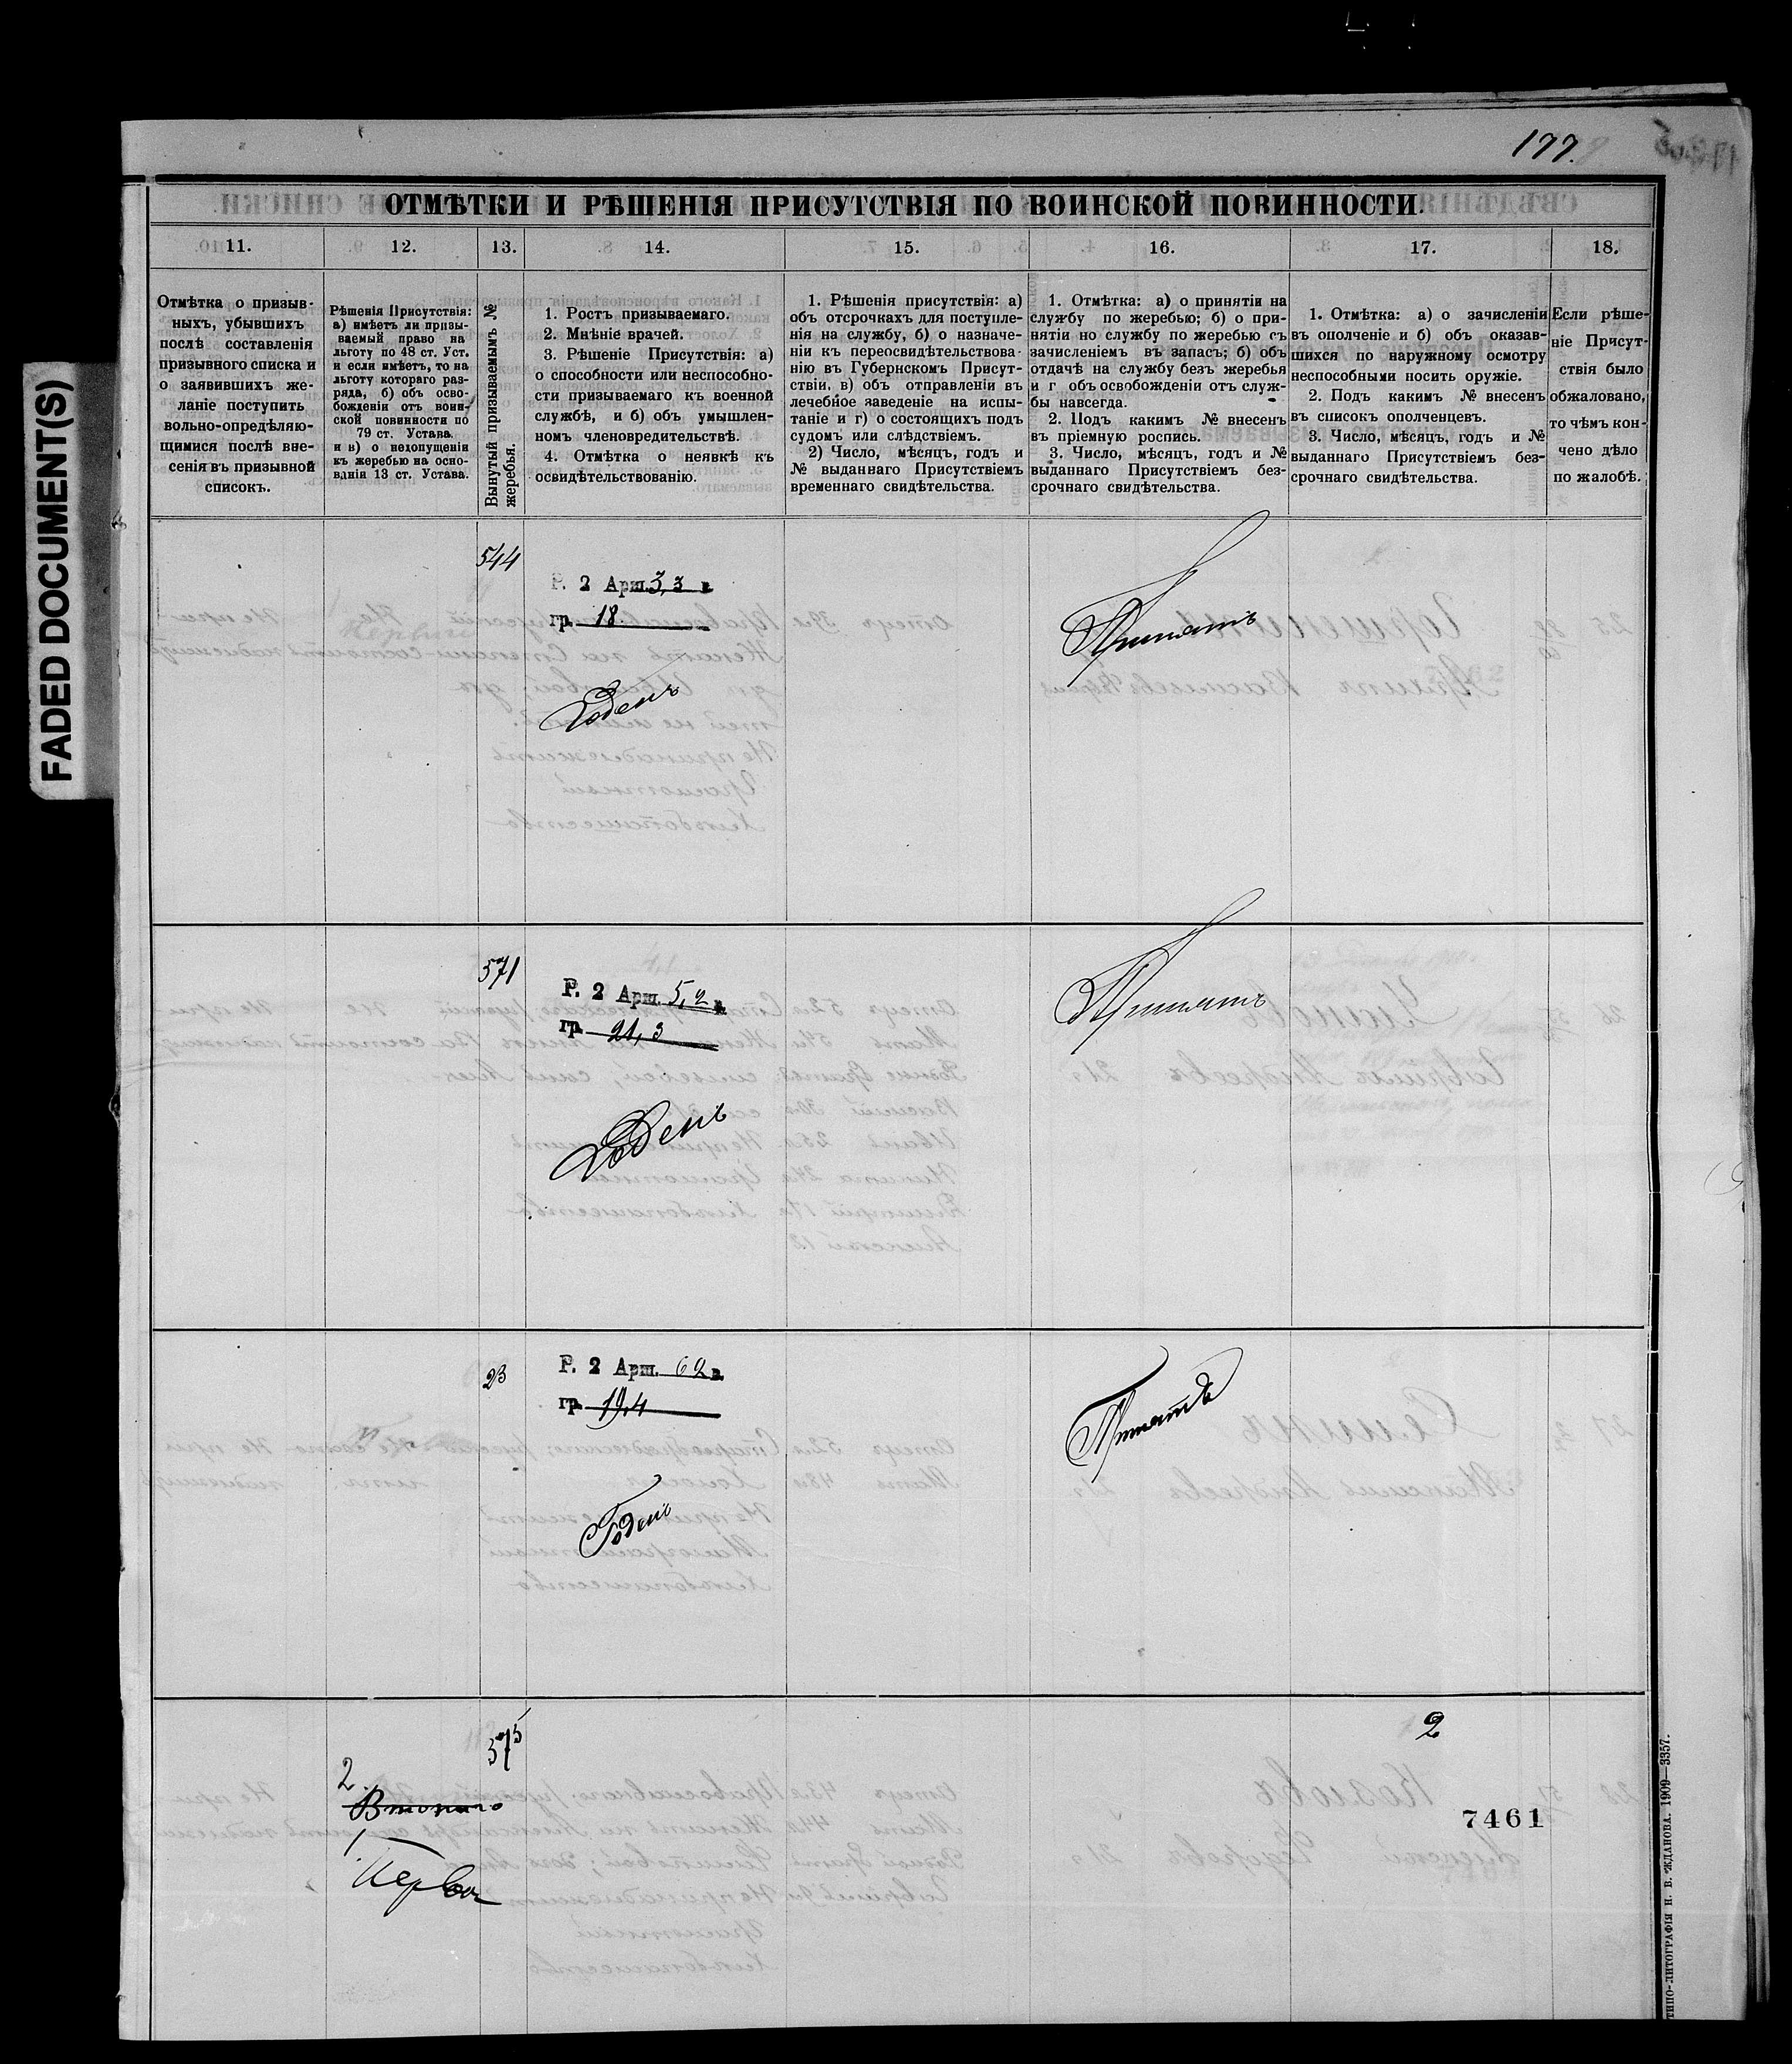 177.
FADED DOCUMENT(S)
ОТМѢТКИ И РѢШЕНІЯ ПРИСУТСТВІЯ ПО ВОИНСКОЙ ПОВИННОСТИ.
11.
12.
13.
14.
15.
16.
17.
18.
Отмѣтка о призыв-
ныхъ, убывшихъ
послѣ составленія
призывного списка и
о заявившихъ же-
ланіе поступить
вольно-опредѣляю-
щимися послѣ вне-
сенія въ призывной
списокъ.
Рѣшенія Присутствія:
а) имѣетъ ли призы-
ваемый право на
льготу по 48 ст. Уст.
и если имѣетъ, то на
льготу котораго раз-
ряда, б) объ осво-
божденіи отъ воин-
ской повинности по
79 ст. Устава
и в) о недопущеніи
къ жеребью на осно-
ваніи 13 ст. Устава.
Вынутый призываемымъ №
жеребья.
1. Ростъ призываемаго.
2. Мнѣніе врачей.
3. Рѣшеніе Присутствія: а)
о способности или неспособно-
сти призываемаго къ военной
службѣ, и б) объ умышлен-
номъ членовредительствѣ.
4. Отмѣтка о неявкѣ къ
освидѣтельствованію.
1. Рѣшенія присутствія: а)
объ отсрочкахъ для поступле-
нія на службу, б) о назначе-
ніи къ переосвидѣтельствова-
нію въ Губернскомъ Присут-
ствіи, в) объ отправленіи въ
лечебное заведеніе на испы-
таніе и г) о состоящихъ подъ
судомъ или слѣдствіемъ.
2) Число, мѣсяцъ, годъ и
№ выданнаго Присутствіемъ
временнаго свидѣтельства.
1. Отмѣтка: а) о принятіи на
службу по жеребью; б) о при-
нятіи но службу по жеребью съ
зачисленіемъ въ запасъ; б) объ
отдачѣ на службу безъ жеребья
и г объ освобожденіи отъ служ-
бы навсегда.
2. Подъ какимъ № внесенъ
въ пріемную роспись.
3. Число, мѣсяцъ, годъ и №
выданнаго Присутствіемъ без-
срочнаго свидѣтельства.
1. Отмѣтка: а) о зачисленіи
въ ополченіе и б) объ оказав-
шихся по наружному осмотру
неспособными носить оружіе.
2. Подъ какимъ № внесенъ
въ списокъ ополченцевъ.
3. Число, мѣсяцъ, годъ и №
выданнаго Присутствіемъ без-
срочнаго свидѣтельства.
Если рѣше-
ніе Присут-
ствія было
обжаловано,
то чѣмъ кон-
чено дѣло
по жалобѣ.
544
Р. 2 Арш. 3,3 в.
гр. 18.
Годенъ
Принятъ
571
Р. 2 Арш. 5,2 в.
гр. 21,3
Годенъ
Принятъ
23
Р. 2 Арш. 62 в.
гр. 19,4
Годенъ
Принятъ
575
2
Втораго
1
Перваго
2
7461
ТИПО-ЛИТОГРАФІЯ Н. В. ЖДАНОВА. 1909—3357.